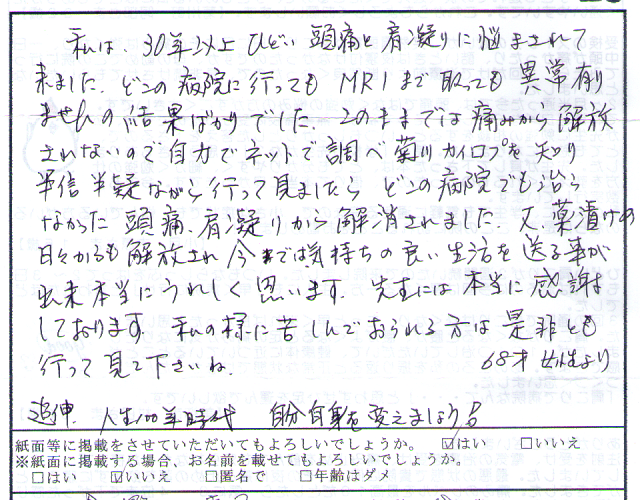 私は、30年以上ひどい頭痛と肩凝りに悩まされて
来ました。どこの病院に行ってもMRIまで取っても異常有り
ませんの結果ばかりでした。このままでは痛みから解放
されないので自力でネットで調べ菊川カイロプを知り
半信半疑ながら行って見ましたら どこの病院でも治ら
なかった頭痛、肩凝りから解消されました。又、薬漬けの
日々からも解放され今では気持ちの良い生活を送る事が
出来本当にうれしく思います。先生には本当に感謝
しております。私の様に苦しんでおられる方は是非とも
行って見て下さいね。
68才 女性より
追伸、人生100年時代 自分自身を変えましょう
紙面等に掲載をさせていただいてもよろしいでしょうか。 ☑はい □いいえ
※紙面に掲載する場合、お名前を載せてもよろしいでしょうか。
□はい ☑いいえ □匿名で □年齢はダメ